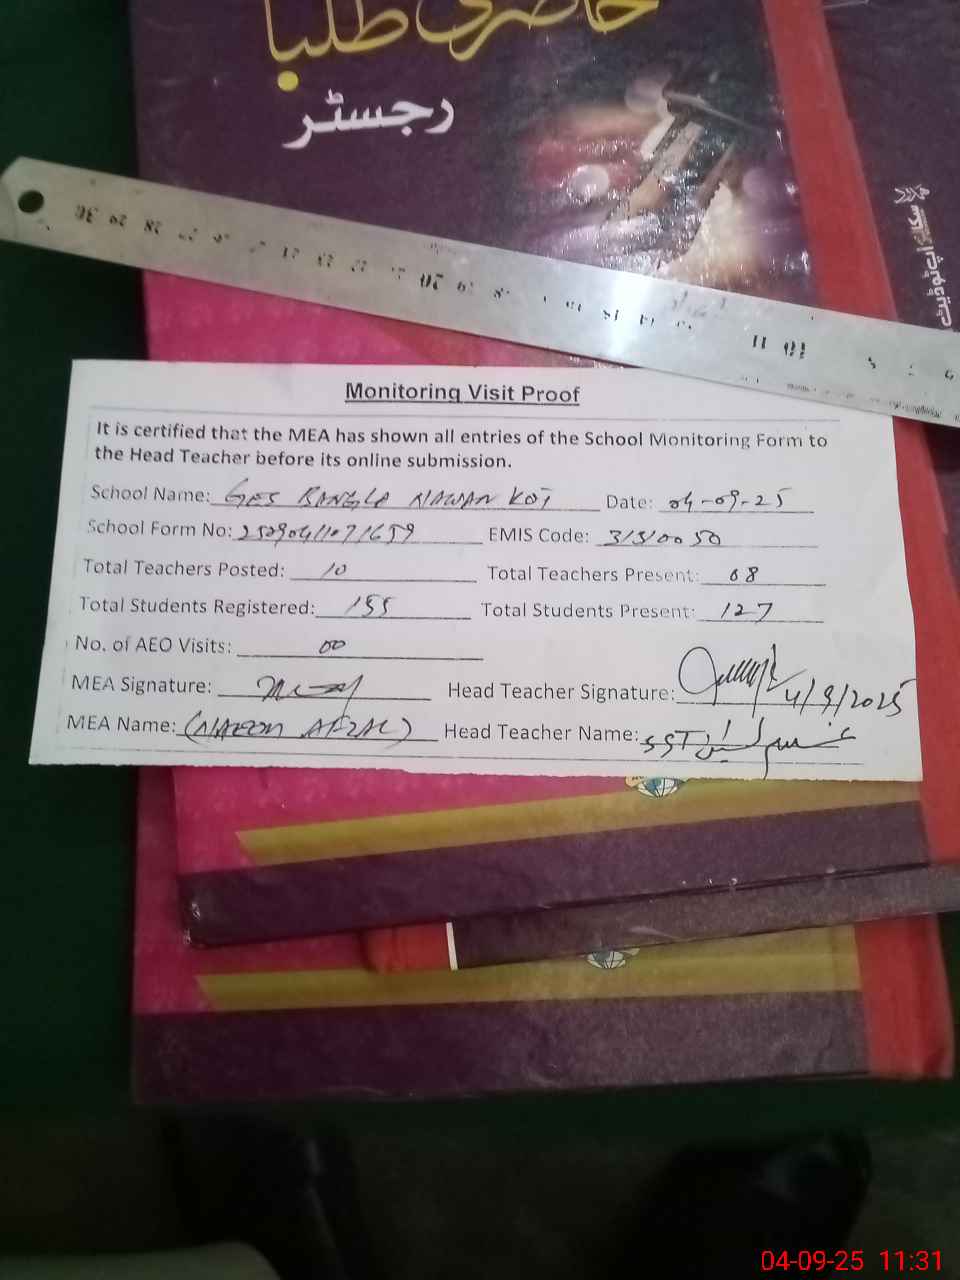 حاضری طلبا
رجسٹر
Monitoring Visit Proof
It is certified that the MEA has shown all entries of the School Monitoring Form to
the Head Teacher before its online submission.
School Name: GES BANGLA NAWAN KOT Date: 04-09-25
School Form No: EMIS Code: 31310050
Total Teachers Posted: 10 Total Teachers Present: 08
Total Students Registered: 155 Total Students Present: 127
No. of AEO Visits: 00
MEA Signature: Head Teacher Signature: 4/9/2025
MEA Name: (NAEEM AFZAL) Head Teacher Name: SST
04-09-25 11:31